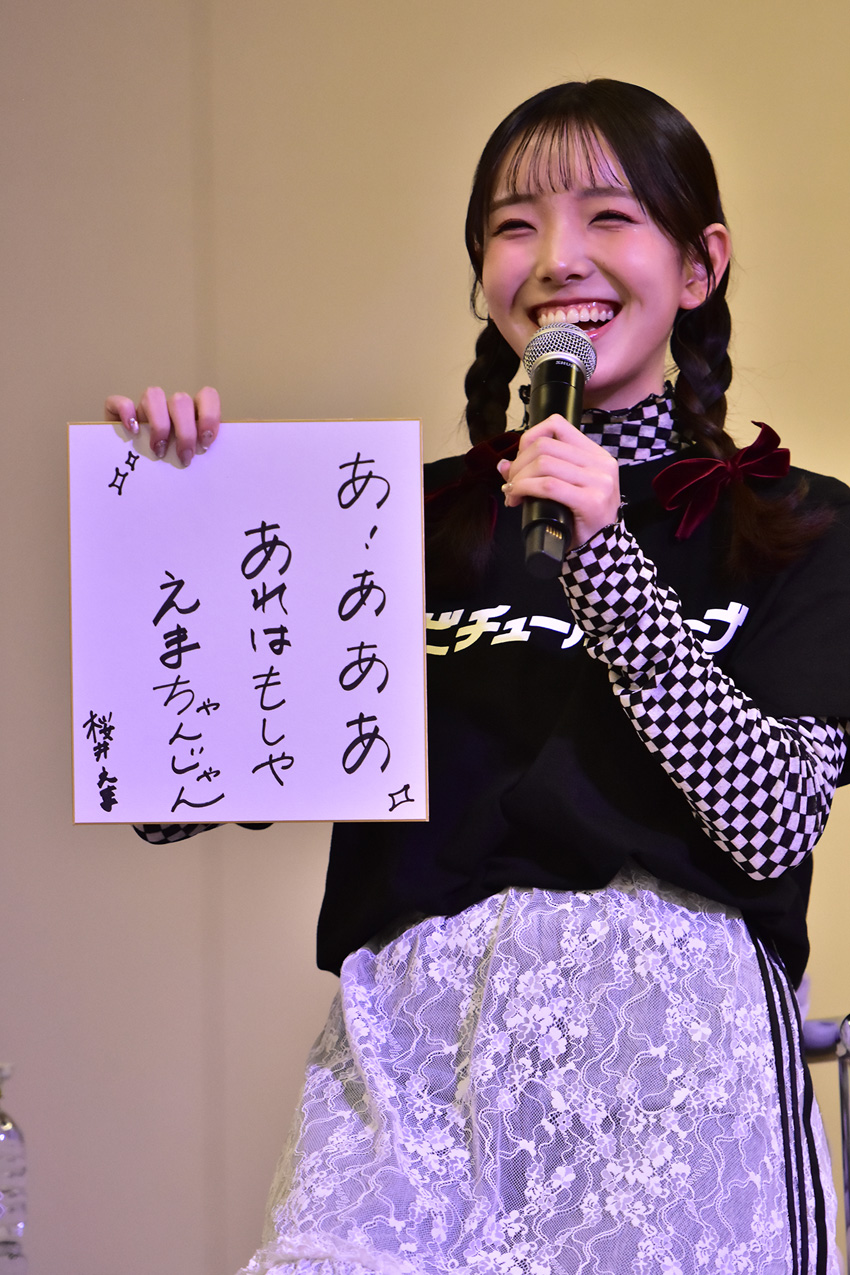 あ！あああ
あれはもしや
えまちゃんじゃん
桜井えま
ビチューバ
ーブ
SHURE